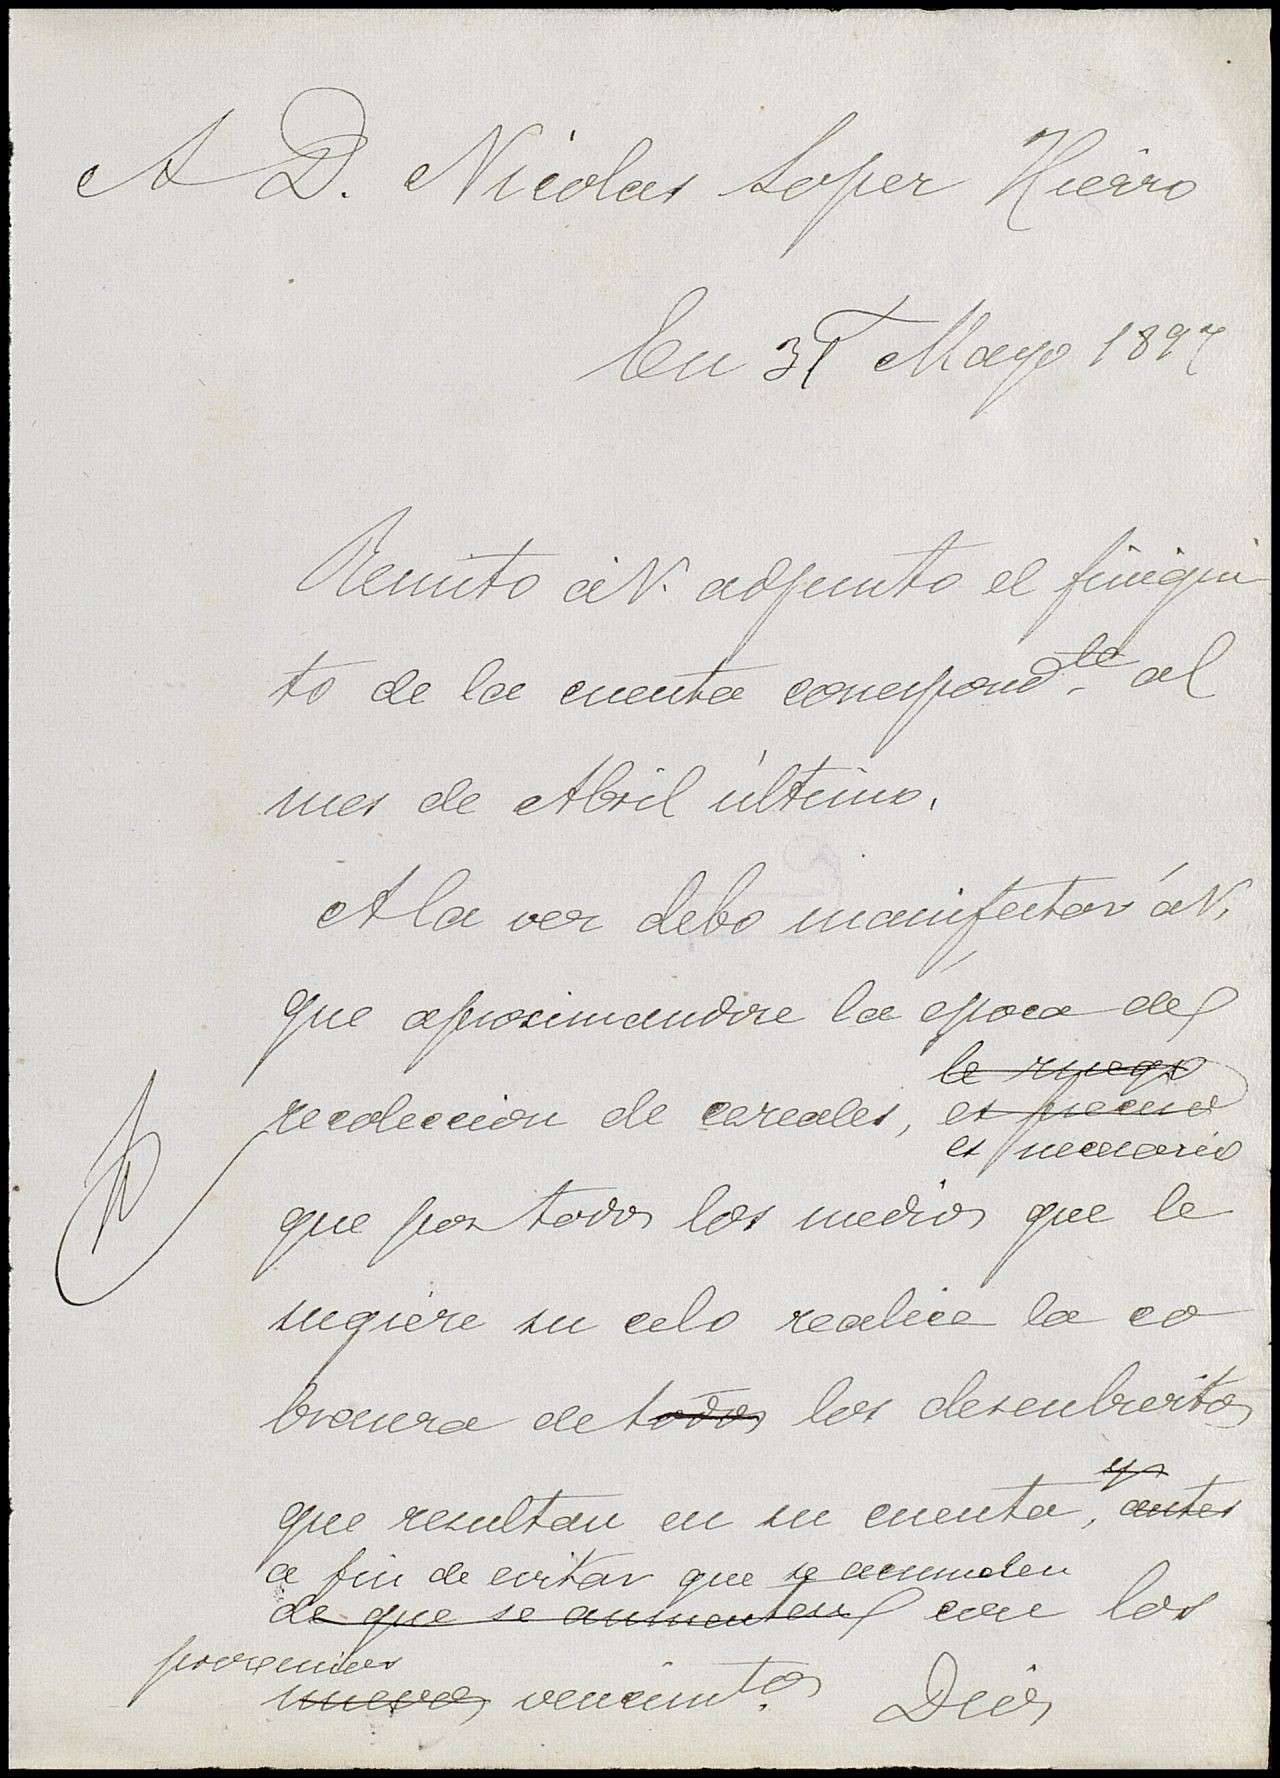 A D. Nicolas Lopez Hierro
En 31 Mayo 1897
Remito á V. adjunto el finiqui
to de la cuenta correspond.te al
mes de Abril último.
A la vez debo manifestar á V.
que aprosimandose la época de
le ruego
recoleccion de cereales, es preciso
es necesario
que por todos los medios que le
sugiere su celo realice la co
branza de todos los descubiertos
que resultan en su cuenta, antes
a fin de evitar que se acumulen
de que se aumenten con los
procsimos
nuevos vencimtos. Dios